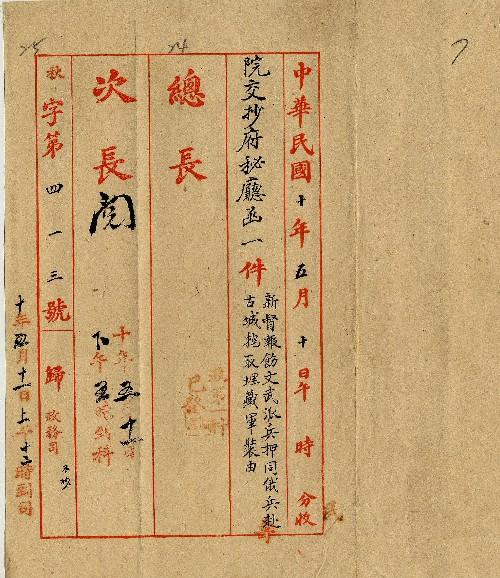 中華民國十年五月十日午 時 分收
院交抄府秘廳函一件
新督報飭文武派兵押同俄兵赴
古城挖取埋藏軍裝由
總長
次長閱
十年五十
下午五
秋字第四一三號 歸政務司
十年五月十一日上午十二時到司
24
25
7